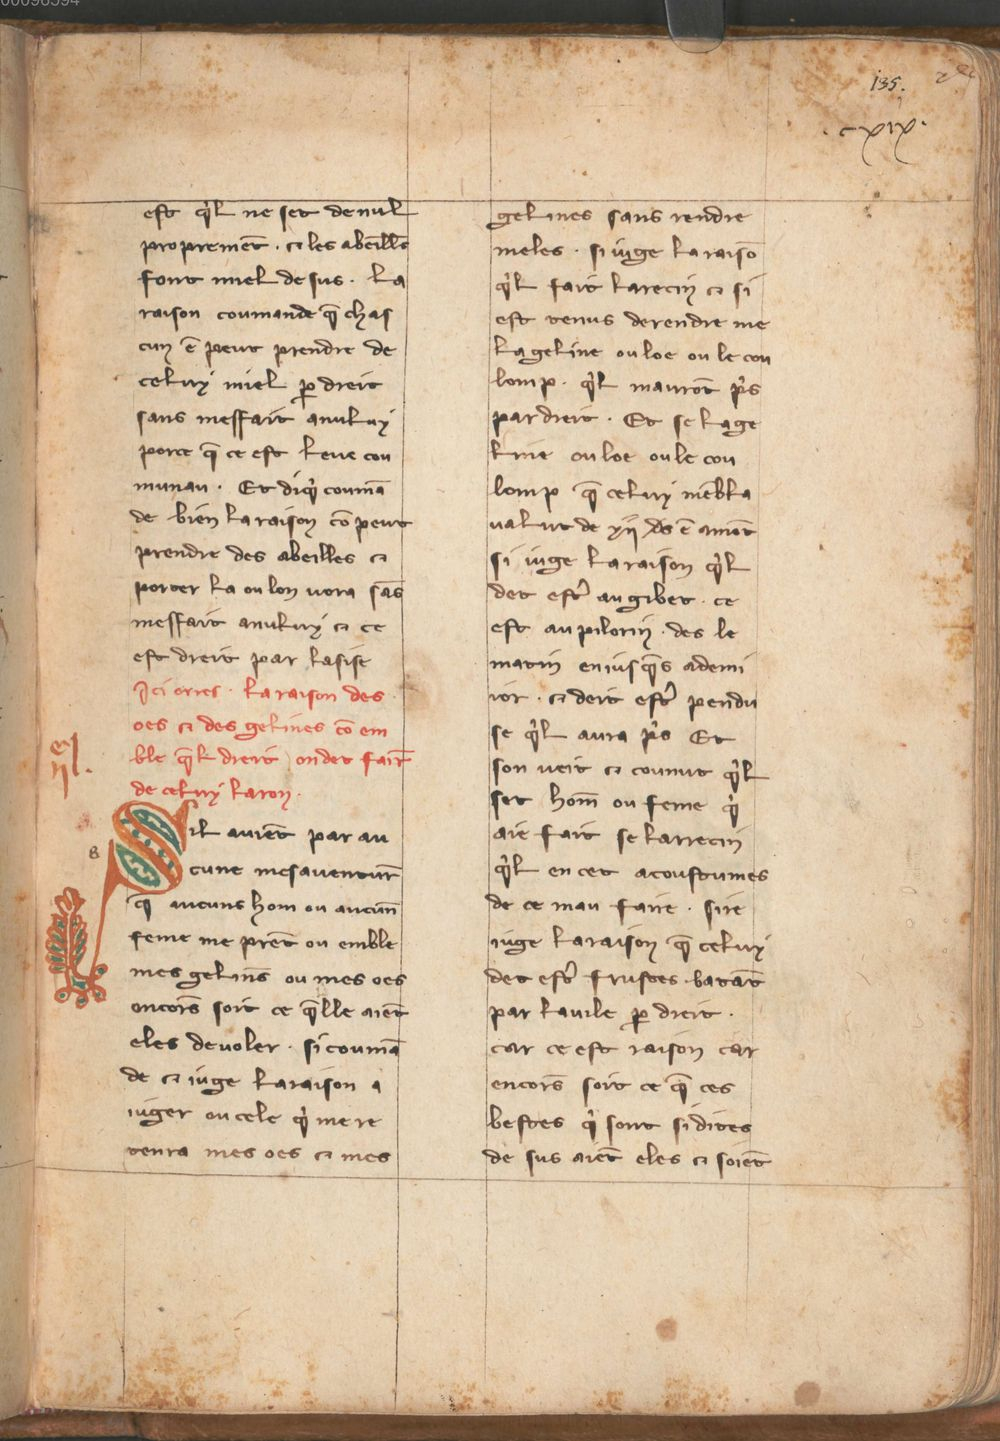 00096594
135.
.cxix.
est q̇l ne set de nul
proprement̄ . ⁊ les abeill̄s
font miel de sus . La
raison coumande q̄ chas
cun ē peut prendre de
celuy miel ꝑ dreit
sans meffait anuluy
porce q̄ ce est leue cou
munau . Et diq̇ coumā
de bien la raison cō peut
prendre des abeilles ⁊
porter la ou lon uora sās
meffait anuluy ⁊ ce
est dreit par lasise
Ici orres . la raison des
oes ⁊ des gelines cō em
ble q̄l dreit on det fair̄
de celuy laron .
B
Sil auient̄ par au
cune mesauentur̄
q̄ aucuns hom ou aucun̄
feme me prent̄ ou emble
mes gelin̄s ou mes oes
oncor̄s soit ce q̄lle aient̄
eles deuoler . si coumā
de ⁊ iuge la raison a
iuger ou cele q̇ me re
tenra mes oes ⁊ mes
gelines sans rendre
meles . si iuge la raisō
q̇l fait larecin ⁊ si
est tenus derendre me
la geline ou loe ou le cou
lomp . q̇l mauront̄ ṗs
par dreit . Et se la ge
line ou loe ou le cou
lomp q̄ celuy mēbla
ualut de xii ds ē amont̄
si iuge la raison q̇l
det estr̄ au gibet . ce
est au pilorin . des le
matin en iusq̄s ademi
ior . ⁊ deit estr̄ pendu
se q̇l aura ṗs Et
son ueit ⁊ counut q̇l
set hom̄ ou feme q̇
aie fait se larrecin
q̇l en cet acoustumes
de ce mau faire . si re
iuge la raison q̄ celuy
det estr̄ frustes . batāt
par lauile ꝑ dreit .
car ce est raison car
encor̄s soit ce q̄ ces
bestes q̇ sont si dites
de sus aient̄ eles ⁊ soient̄